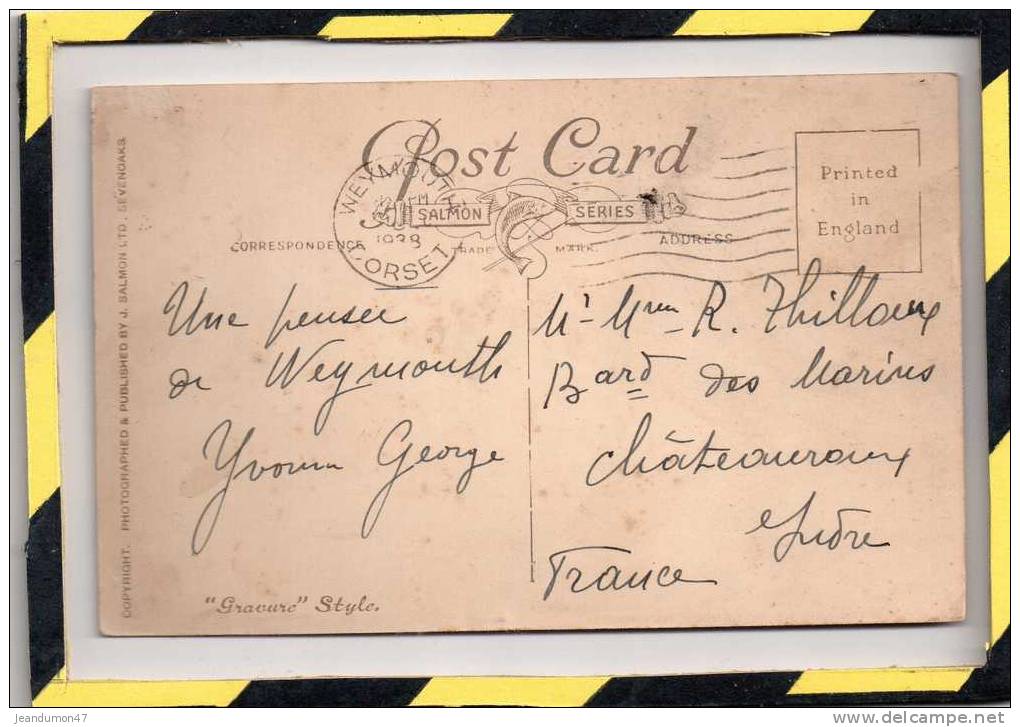 Post Card
SALMON SERIES
TRADE MARK.
CORRESPONDENCE
ADDRESS
Printed
in
England
WEYMOUTH
PM
1938
DORSET
Une pensée
de Weymouth
Yvonne George
Mr Mme R. Thilloux
Bard des Marins
Châteauroux
Indre
France
"Gravure" Style.
COPYRIGHT. PHOTOGRAPHED & PUBLISHED BY J. SALMON LTD. SEVENOAKS.
jeandumon47